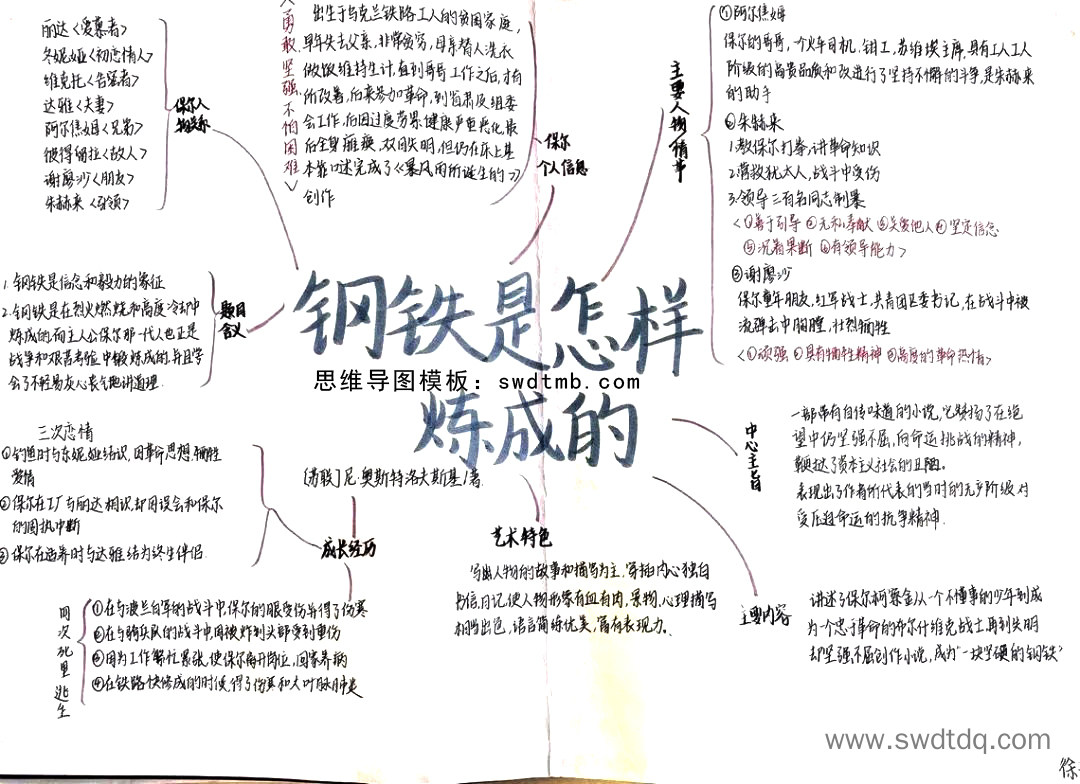 钢铁是怎样
炼成的
思维导图模板：swdtmb.com
[苏联]尼·奥斯特洛夫斯基/著
保尔人
物关系
丽达<爱慕者>
冬妮娅<初恋情人>
维克托<告密者>
达雅<夫妻>
阿尔焦姆<兄弟>
谢廖沙<朋友>
朱赫来<引领>
保尔
个人信息
<勇敢坚强不怕困难>
出生于乌克兰铁路工人的贫困家庭，
早年失去父亲，非常贫穷，母亲替人洗衣
做饭维持生计，直到哥哥工作之后，才有
所改善，后来参加革命，到省肃反组委
会工作，后因过度劳累，健康严重恶化，最
后全身瘫痪，双目失明，但仍在床上基
本靠口述完成了《暴风雨所诞生的》
创作
主要人物情节
①阿尔焦姆
保尔的哥哥，一个火车司机，钳工，苏维埃主席，具有工人
阶级的高贵品质和改进行了坚持不懈的斗争，是朱赫来
的助手
②朱赫来
1.教保尔打拳，讲革命知识
2.营救犹太人，战斗中受伤
3.领导三百名同志制暴
<①善于引导 ②无私奉献 ③关爱他人 ④坚定信念
⑤沉着果断 ⑥有领导能力>
③谢廖沙
保尔童年朋友，红军战士，共青团区委书记，在战斗中被
流弹击中胸膛，壮烈牺牲
<①顽强 ②具有牺牲精神 ③高度的革命热情>
题目
含义
1.钢铁是信念和毅力的象征
2.钢铁是在烈火燃烧和高度冷却中
炼成的，而主人公保尔那一代人也正是
战争和艰苦考验中锻炼成的，并且学
会了不轻易灰心丧气的讲道理.
中心主旨
一部带有自传味道的小说，它赞扬了在绝
望中仍坚强不屈，向命运挑战的精神，
鞭挞了资本主义社会的丑陋。
表现出了作者所代表的当时的无产阶级对
受压迫命运的抗争精神.
成长经历
三次恋情
①钓鱼时与冬妮娅结识，因革命思想，牺牲
爱情
②保尔在工厂与丽达相识却因误会和保尔
的固执中断
③保尔在疗养时与达雅结为终生伴侣.
四次死里逃生
①在与波兰白军的战斗中，保尔的腿受伤并得了伤寒
②在与骑兵队的战斗中因被炸到头部受到重伤
③因为工作繁忙紧张，使保尔离开岗位，回家养病
④在铁路快修成的时候得了伤寒和大叶肺炎
艺术特色
写出人物的故事和描写为主，穿插内心独白
书信，日记，使人物形象有血有肉，景物，心理描写
相当出色，语言简练优美，富有表现力。
主要内容
讲述了保尔·柯察金从一个不懂事的少年到成
为一个忠于革命的布尔什维克战士再到失明
却坚强不屈创作小说，成为"一块坚硬的钢铁"
www.swdtdq.com
徐